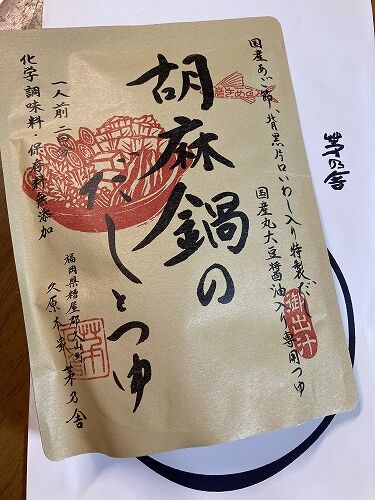 国産あご節、背黒片口いわし入り特製だし
国産丸大豆醤油入り専用つゆ
御出汁
胡麻鍋の
だしとつゆ
一人前二回分
化学調味料・保存料無添加
福岡県糟屋郡久山町
久原本家 茅乃舎
茅乃舎